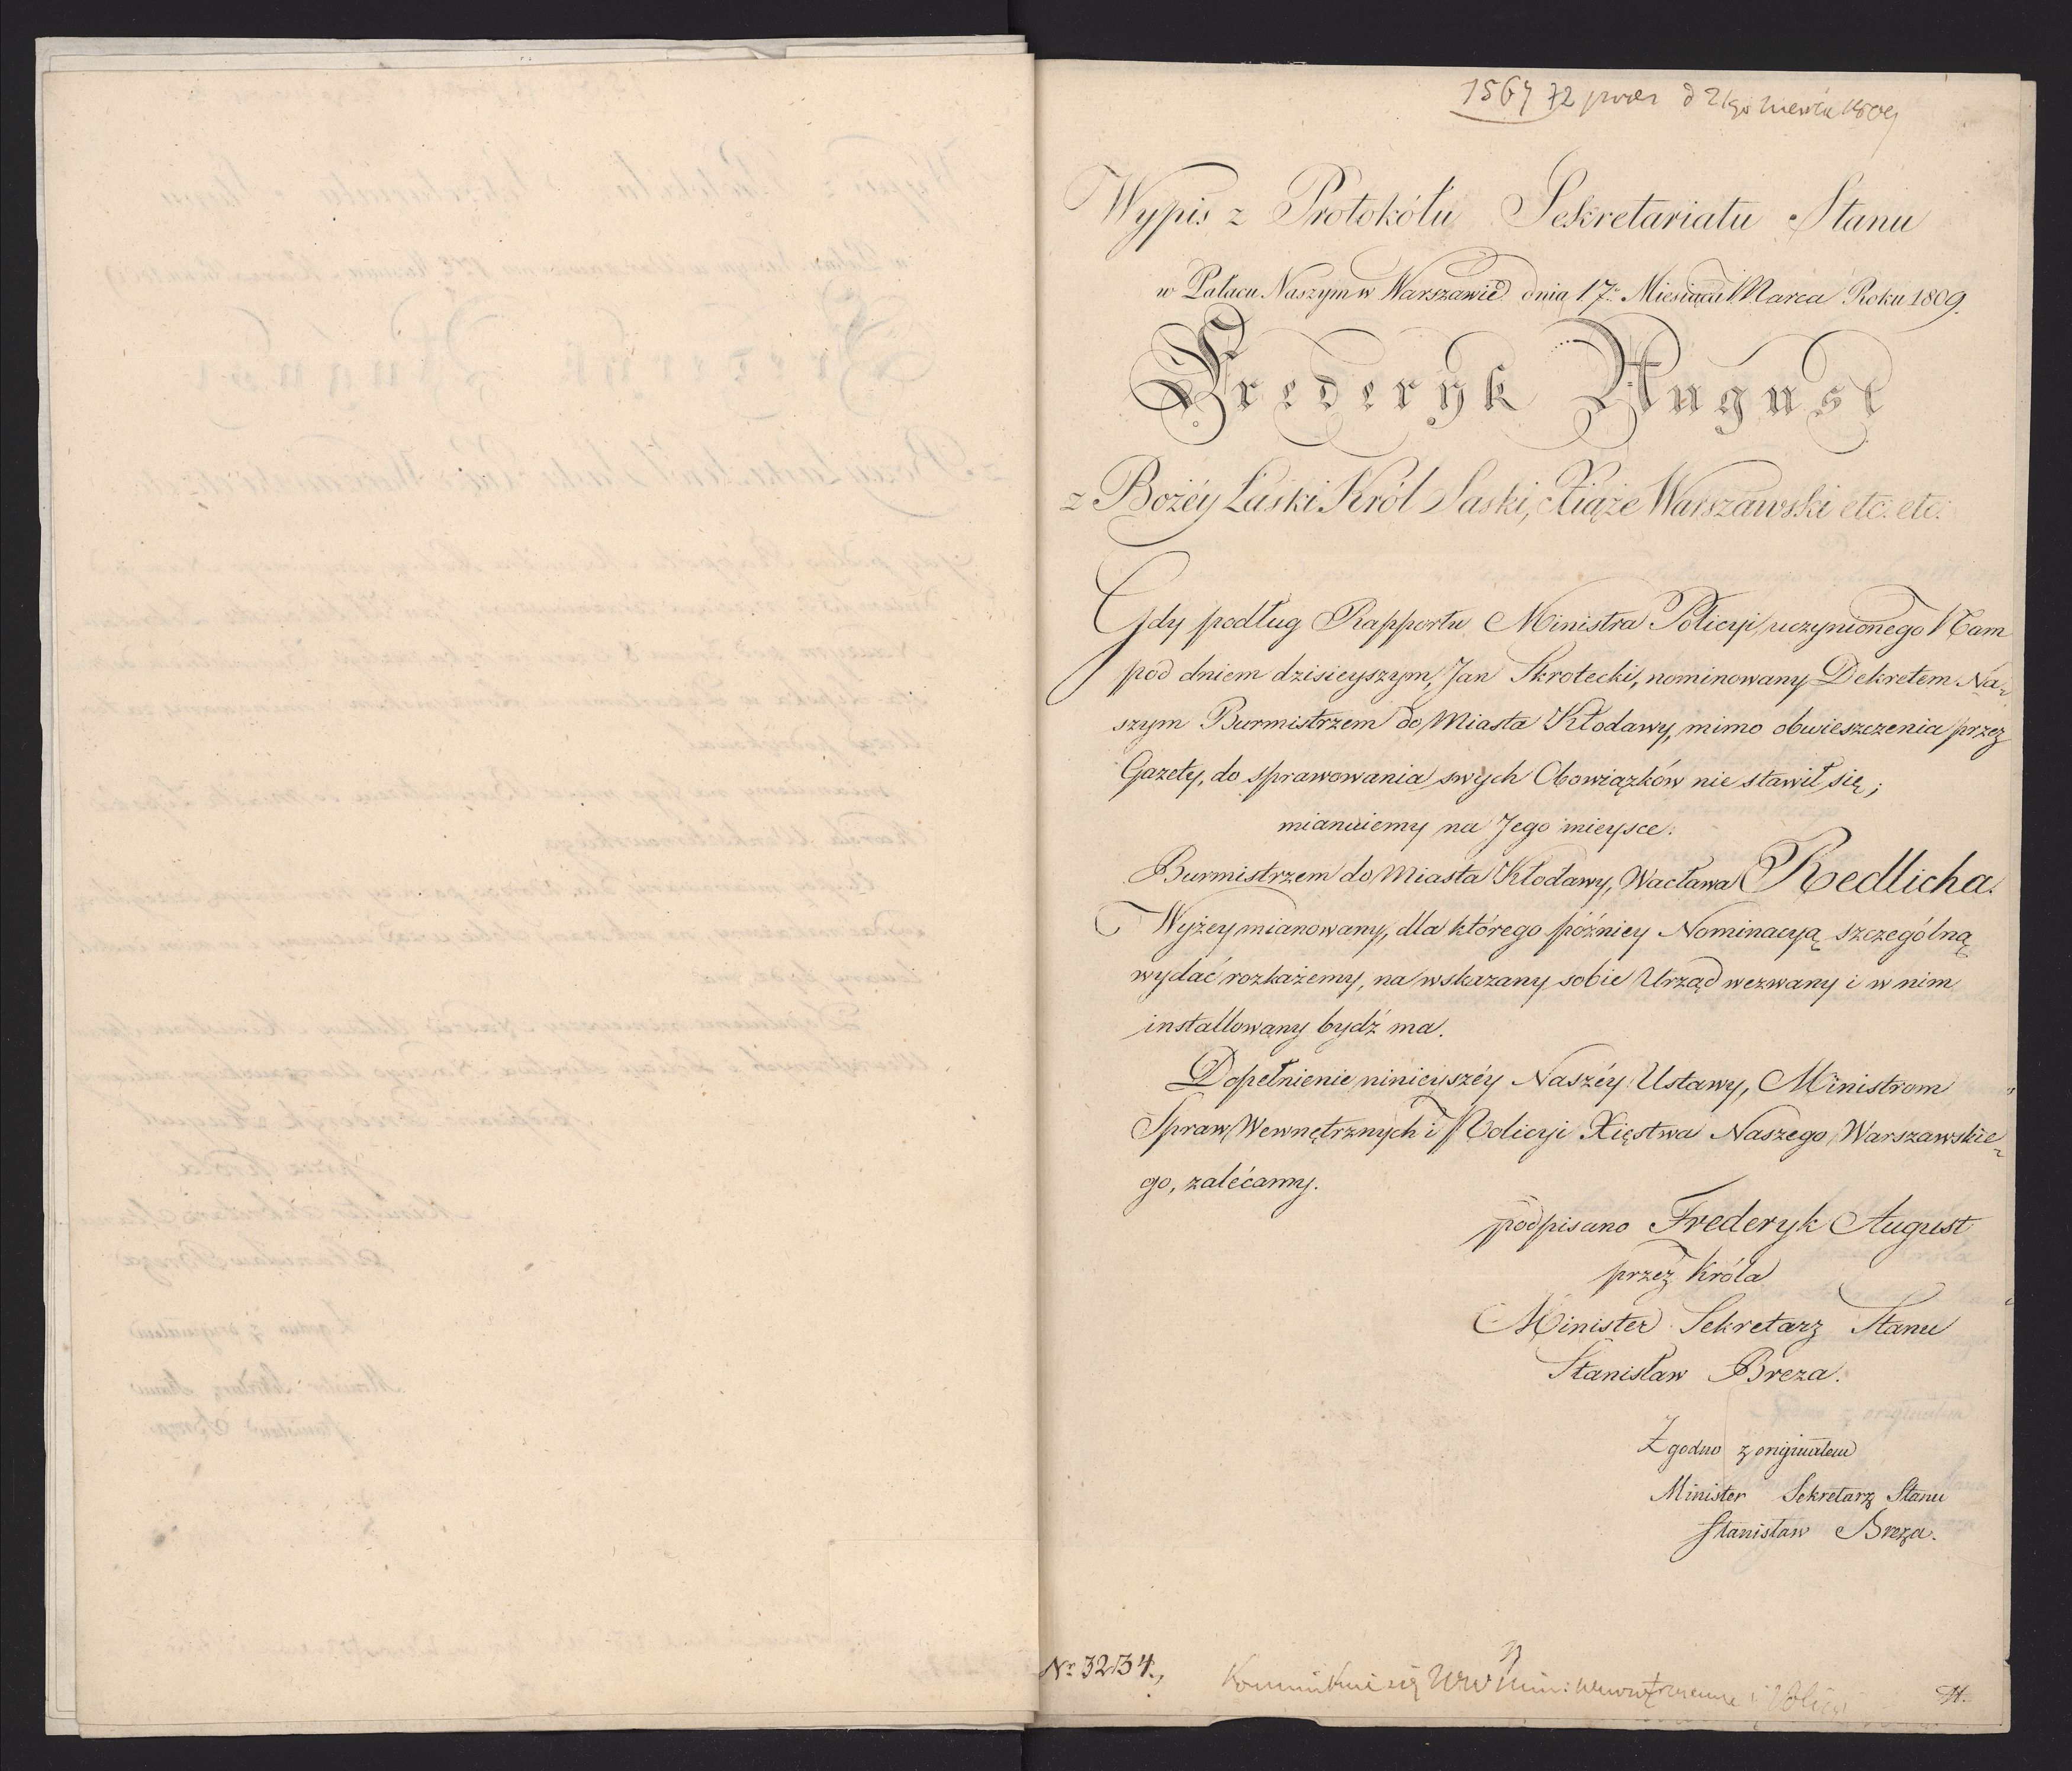 1564 72
Wypis z Protokółu Sekretariatu Stanu
w Pałacu Naszym w Warszawie dnia 17º Miesiąca Marca Roku 1809.
Frederyk August
z Bożéy Łaski Król Saski, Xiąże Warszawski etc. etc.
Gdy podług Rapportu Ministra Policyi, uczynionego Nam
pod dniem dzisieyszym, Jan Skrotecki, nominowany Dekretem Na-
szym Burmistrzem do Miasta Kłodawy, mimo obwieszczenia przez
Gazety, do sprawowania swych Obowiązków nie stawił się;
mianuiemy na Jego mieysce:
Burmistrzem do Miasta Kłodawy, Wacława Redlicha.
Wyżey mianowany, dla którego późniey Nominacyą szczególną
wydać rozkażemy, na wskazany sobie Urząd wezwany i w nim
installowany bydź ma.
Dopełnienie ninieyszéy Naszéy Ustawy, Ministrom
Spraw Wewnętrznych i Policyi Xięstwa Naszego Warszawskie-
go, zalécamy.
podpisano Frederyk August
przez Króla
Minister Sekretarz Stanu
Stanisław Breza.
Zgodno z originałem
Minister Sekretarz Stanu
Stanisław Breza.
Nº 3234.,